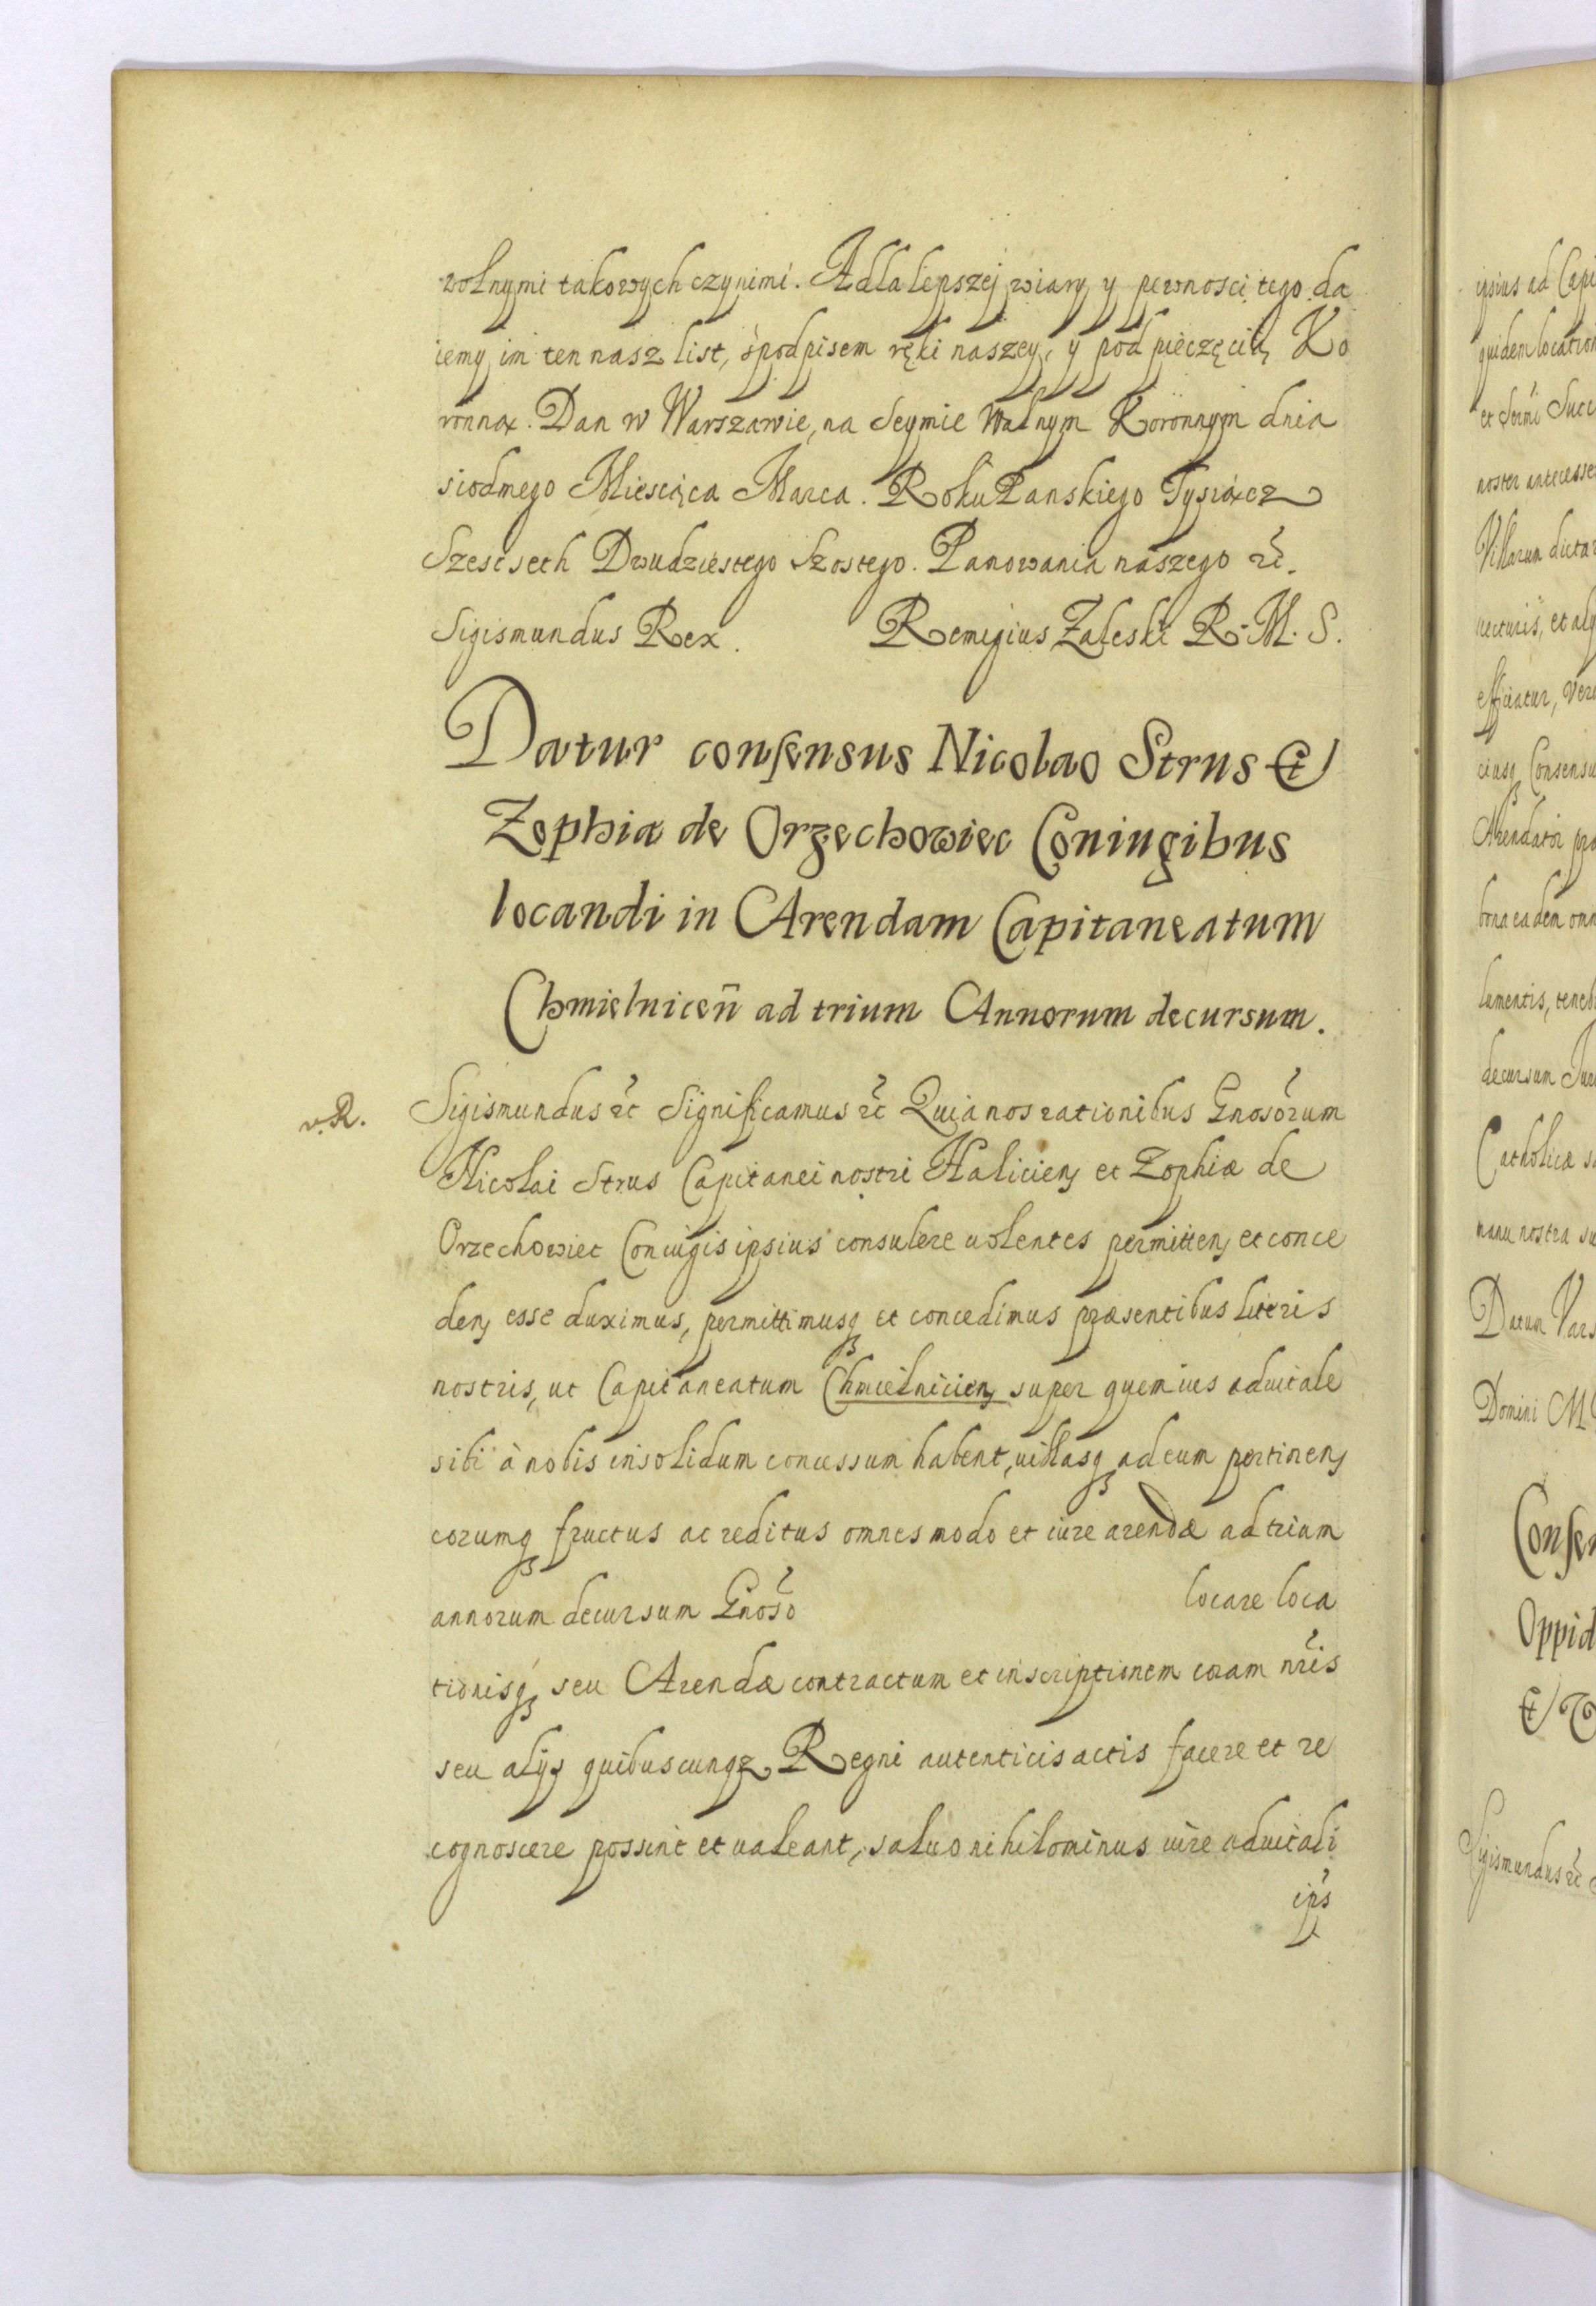 wolnymi takowych czynimi. A dla lepszej wiary y pewnosci tego da
iemy im ten nasz list, s podpisem ręki naszey, y pod pieczęcią Ko
ronną. Dan w Warszawie, na Seymie Walnym Koronnym dnia
siodmego Miesiąca Marca. Roku Panskiego Tysiącz
Szescseth Dwudziestego Szostego. Panowania naszego etc.
Sigismundus Rex. Remigius Zaleski R. M. S.
Datur consensus Nicolao Strus et
Zophiæ de Orzechowiec Coniugibus
locandi in Arendam Capitaneatum
Chmielniceñ ad trium Annorum decursum.
v. R.
Sigismundus etc Significamus etc Quia nos rationibus Gnosorum
Nicolai Strus Capitanei nostri Haliciens et Zophiæ de
Orzechowiec Coniugis ipsius consulere uolentes permitten et conce
den esse duximus, permittimusq et concedimus præsentibus literis
nostris, ut Capitaneatum Chmielnicien super quem ius aduitale
sibi à nobis insolidum concessum habent, uillasq ad eum pertinen
eorumq fructus ac reditus omnes modo et iure arendæ ad trium
annorum decursum Gnoso locare loca
tionisq seu Arendæ contractum et inscriptionem coram nris
seu alijs quibuscunqz Regni autenticis actis facere et re
cognoscere possint et ualeant, saluo nihilominus iure aduitali
ips
ipsius ad Capi
quidem location
et Sermi Succ
noster antecesse
Villarum dictar
uecturis, et aly
efficiatur, Vero
eiusq Consensu
Arendator pro
bona eadem omn
lumentis, teneb
decursum Jure
Catholicæ
manu nostra su
Datum Vars
Domini M
Consen
Oppid
et
Sigismundus etc